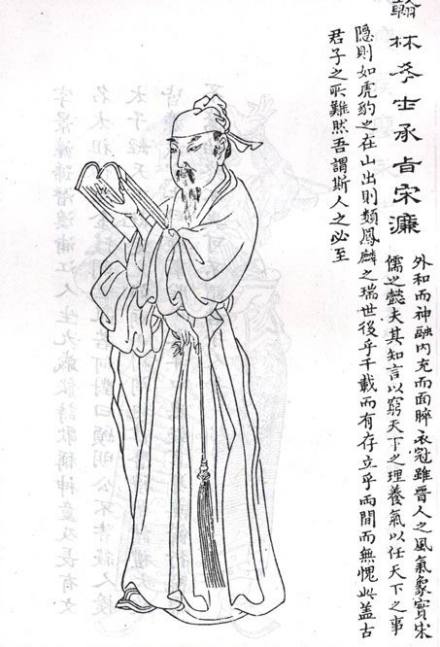 翰林學士承旨宋濂
外和而神融内充而面睟衣冠雖晉人之風氣象實宋
儒之懿夫其知言以窮天下之理養氣以任天下之事
隠則如虎豹之在山出則類鳳麟之瑞世後乎千載而有存立乎兩間而無愧此盖古
君子之所難然吾謂斯人之必至